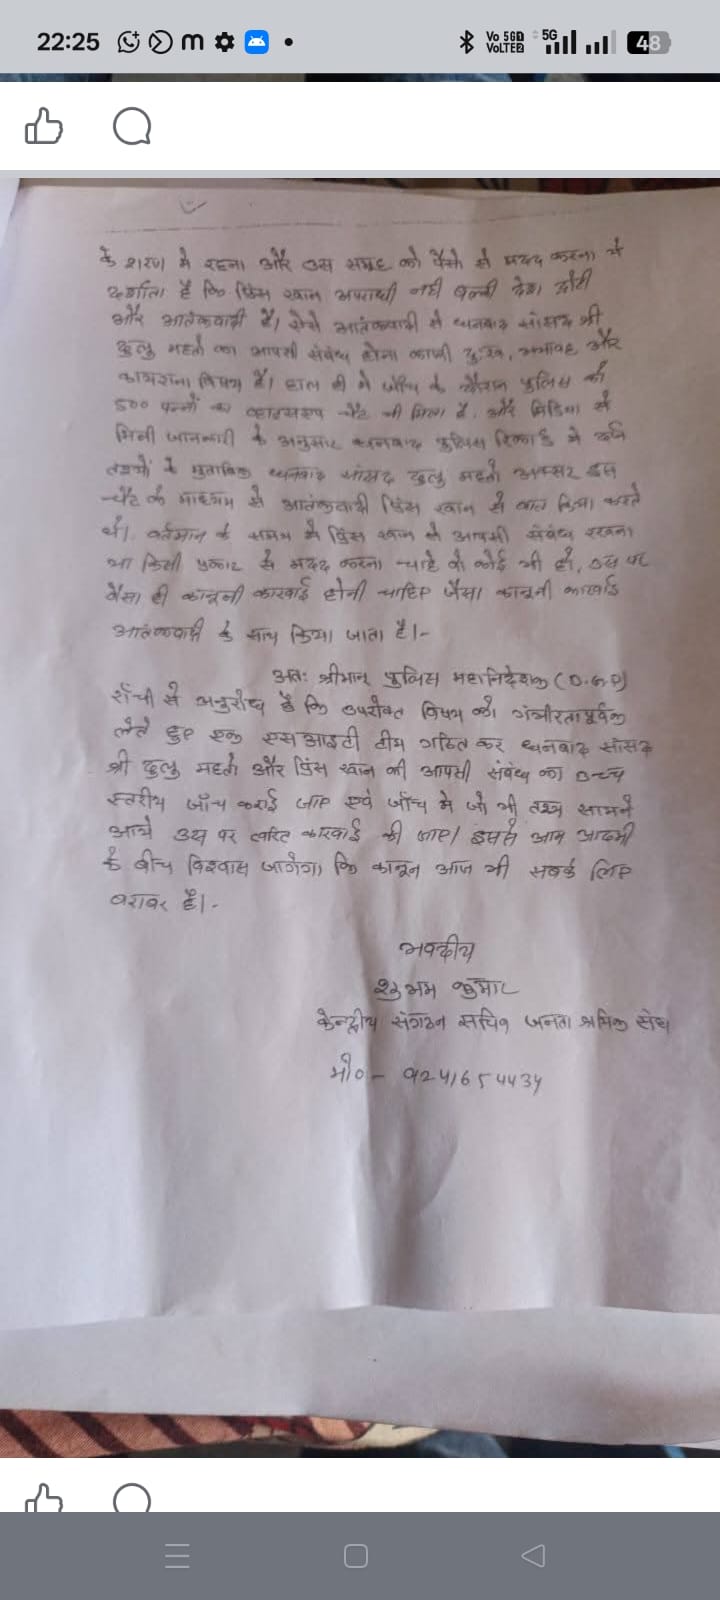 22:25
Vo 5GD
VoLTE2
5G
48
के शरण मे रहना और उस समूह को पैसे से मदद करना ये
दर्शाता है कि प्रिंस खान अपराधी नही बल्की देश द्रोही
और आतंकवादी है। ऐसे आतंकवादी से धनबाद सांसद श्री
ढुलु महतो का आपसी संबंध होना काफी दु:ख, भयावह और
विषय है। हाल ही मे जाँच के दौरान पुलिस को
500 पन्नों का व्हाटसएप चैट भी मिला है, और मिडिया से
मिली जानकारी के अनुसार धनबाद पुलिस रिकार्ड मे दर्ज
तथ्यों के मुताबिक धनबाद सांसद ढुलु महतो अक्सर इस
चैट के माध्यम से आतंकवादी प्रिंस खान से बात किया करते
थे। वर्तमान के समय मे प्रिंस खान से आपसी संबंध रखना
या किसी प्रकार से मदद करना चाहे वो कोई भी हो, उस पर
वैसा ही कानूनी कारवाई होनी चाहिए जैसा कानूनी कारवाई
आतंकवादी के साथ किया जाता है।-
अतः श्रीमान् पुलिस महानिदेशक (D.G.P)
राँची से अनुरोध है कि उपरोक्त विषय को गंभीरतापूर्वक
लेते हुए एक एसआइटी टीम गठित कर धनबाद सांसद
श्री ढुलु महतो और प्रिंस खान की आपसी संबंध का उच्च
स्तरीय जाँच कराई जाए एवं जाँच मे जो भी तथ्य सामने
आये उस पर त्वरित कारवाई की जाए। इससे आम आदमी
के बीच विश्वास जागेगा कि कानून आज भी सबके लिए
बराबर है।-
भवदीय
शुभम कुमार
केन्द्रीय संगठन सचिव जनता श्रमिक संघ
मो०- 9241654434